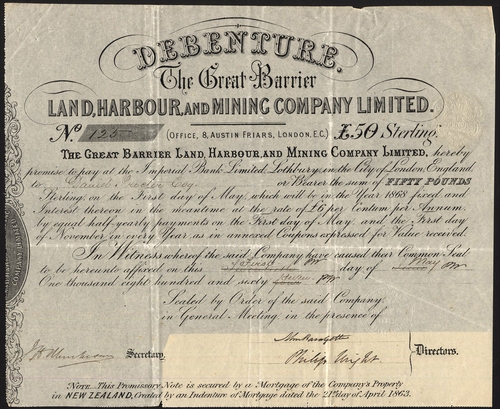 DEBENTURE.
The Great Barrier
LAND, HARBOUR, AND MINING COMPANY LIMITED.
No. 125 (OFFICE, 8, AUSTIN FRIARS, LONDON, E.C.) £50 Sterling.
THE GREAT BARRIER LAND, HARBOUR, AND MINING COMPANY LIMITED, hereby
promise to pay at the Imperial Bank Limited, Lothbury, in the City of London, England,
to Daniel Esq or Bearer the sum of FIFTY POUNDS
Sterling on the First day of May, which will be in the Year 1868 fixed, and
Interest thereon in the meantime at the rate of £6 per Centum per Annum,
by equal half-yearly payments on the First day of May, and the First day
of November in every Year as in annexed Coupons expressed for Value received.
In Witness whereof the said Company have caused their Common Seal
to be hereunto affixed on this day of May
One thousand eight hundred and sixty
Sealed by Order of the said Company
in General Meeting in the presence of
Secretary.
Philip Wright
Directors.
NOTE. This Promissory Note is secured by a Mortgage of the Company's Property
in NEW ZEALAND, Created by an Indenture of Mortgage dated the 21st day of April 1863.